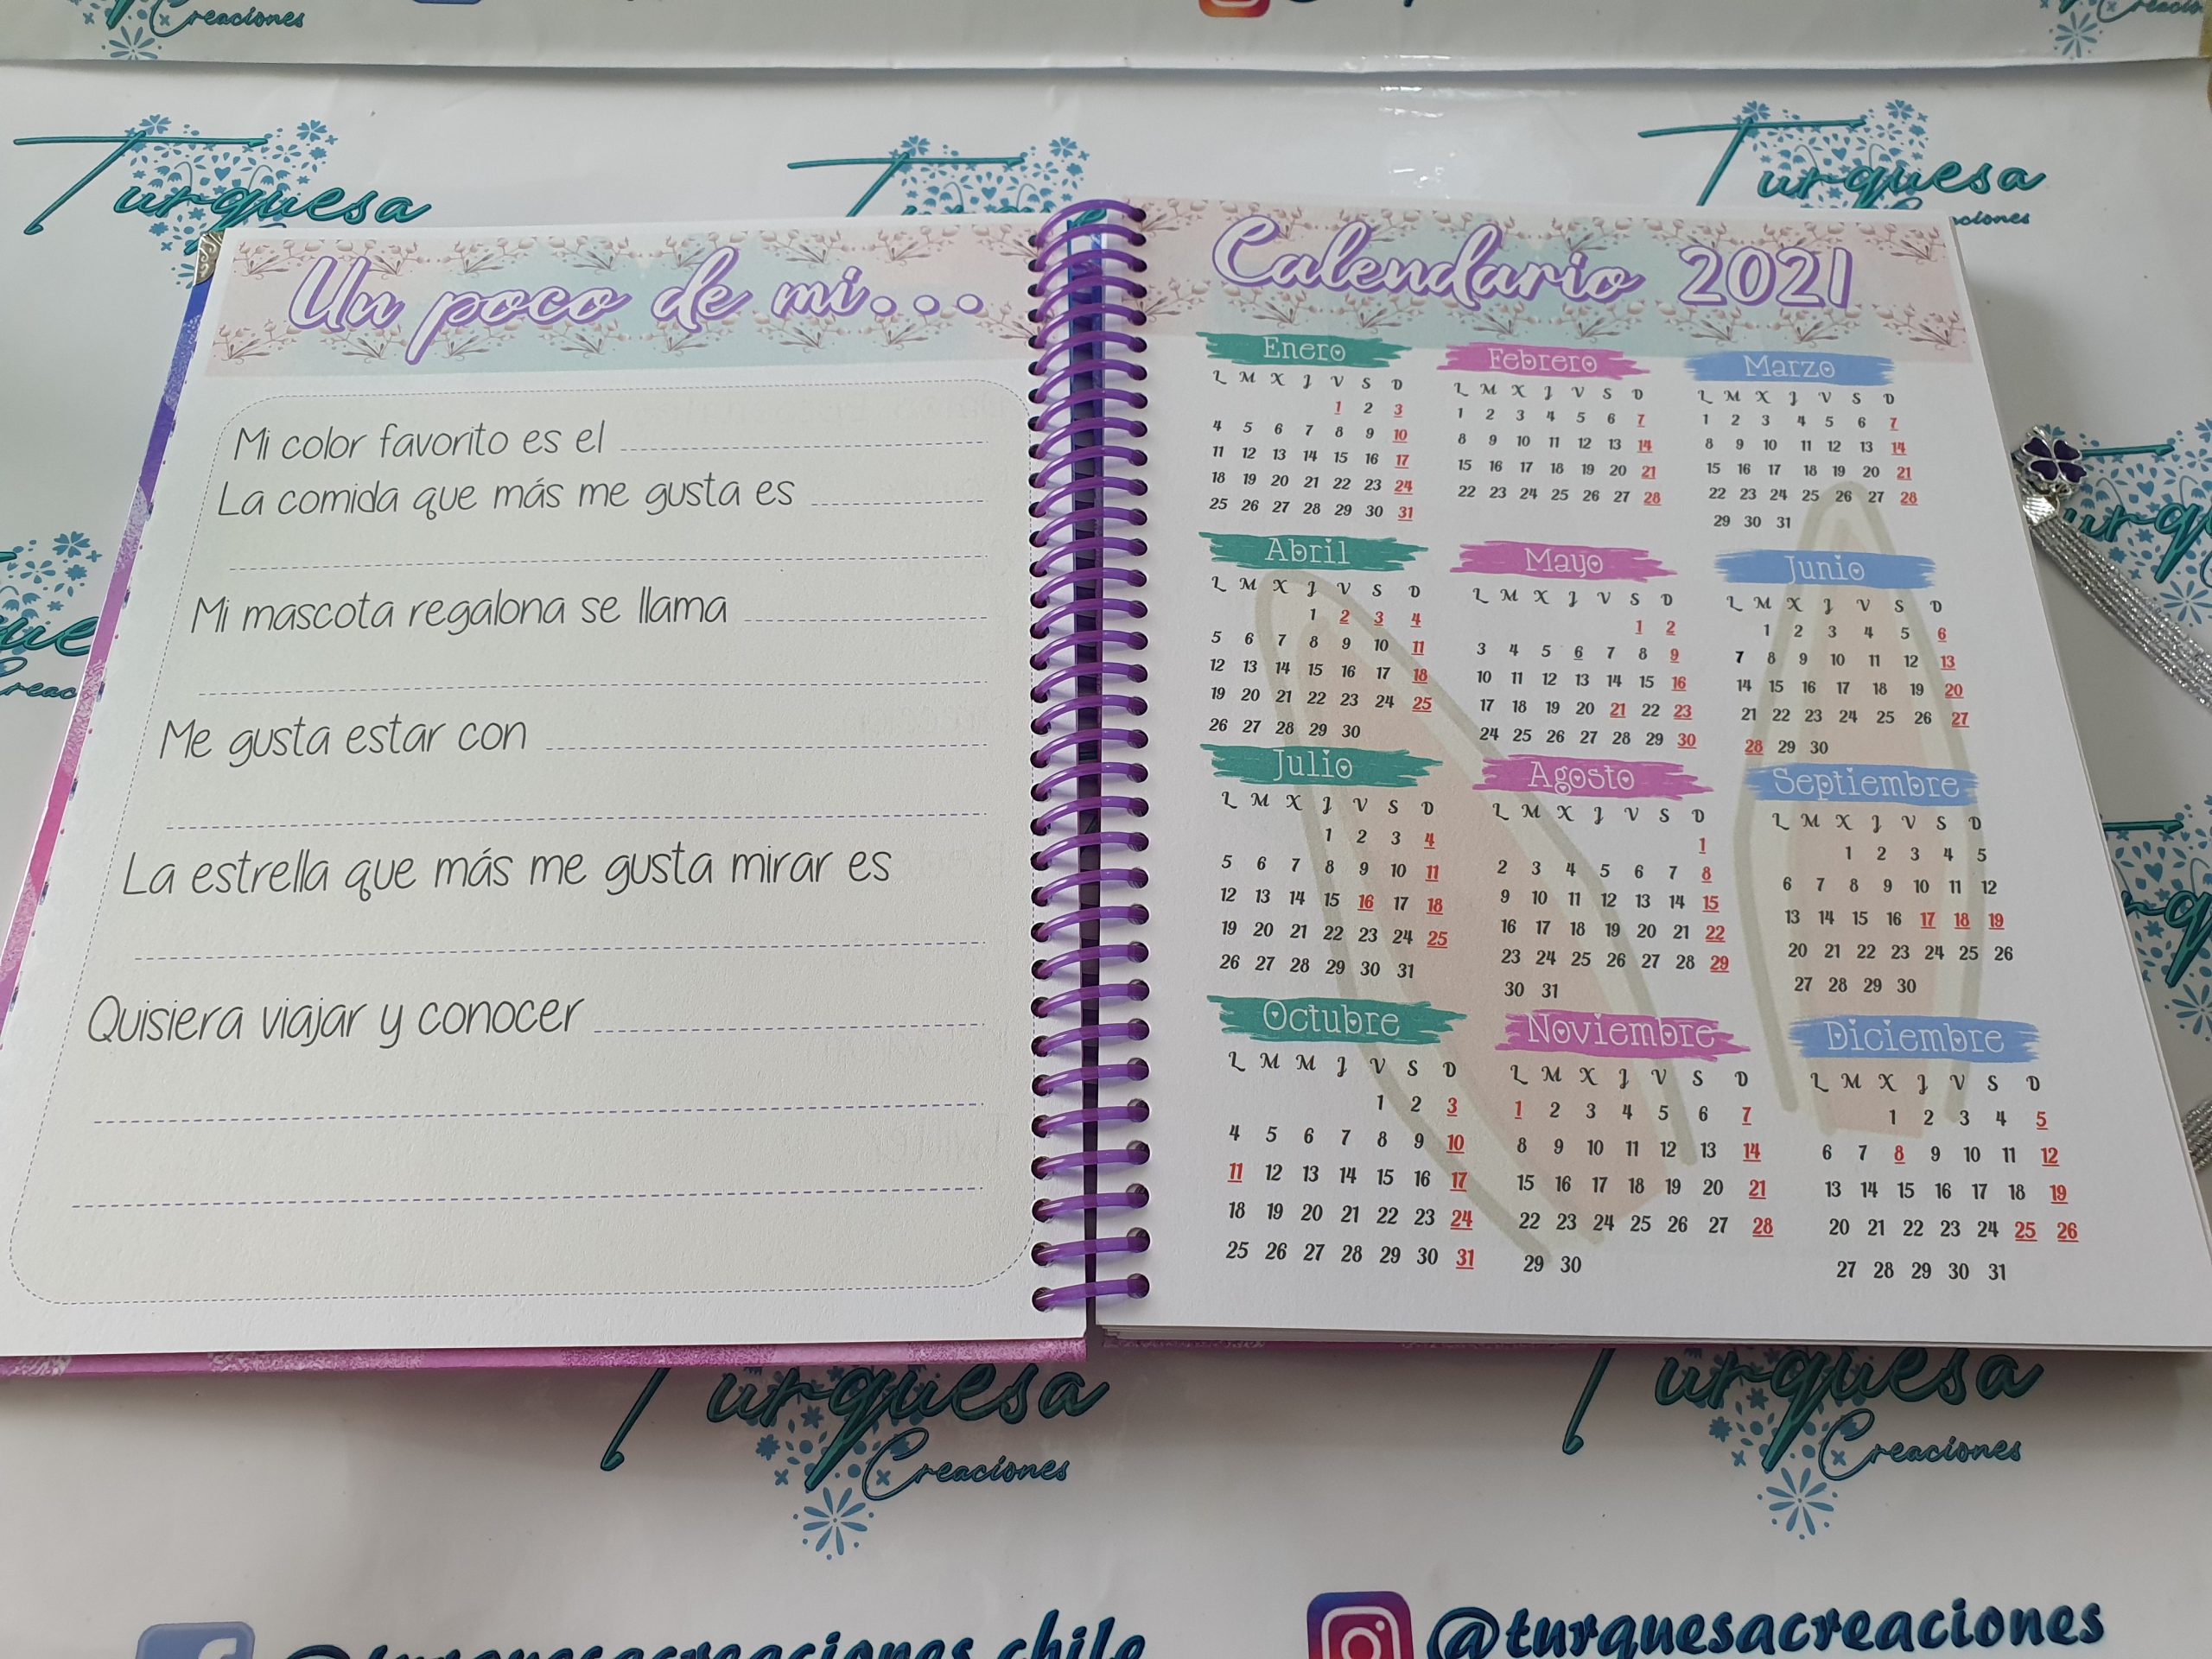 Creaciones
Turquesa
Turquesa
Creaciones
Un poco de mi...
Mi color favorito es el
La comida que más me gusta es
Mi mascota regalona se llama
Me gusta estar con
La estrella que más me gusta mirar es
Quisiera viajar y conocer
Calendario 2021
Enero
L M X J V S D
1 2 3
4 5 6 7 8 9 10
11 12 13 14 15 16 17
18 19 20 21 22 23 24
25 26 27 28 29 30 31
Febrero
L M X J V S D
1 2 3 4 5 6 7
8 9 10 11 12 13 14
15 16 17 18 19 20 21
22 23 24 25 26 27 28
Marzo
L M X J V S D
1 2 3 4 5 6 7
8 9 10 11 12 13 14
15 16 17 18 19 20 21
22 23 24 25 26 27 28
29 30 31
Abril
L M X J V S D
1 2 3 4
5 6 7 8 9 10 11
12 13 14 15 16 17 18
19 20 21 22 23 24 25
26 27 28 29 30
Mayo
L M X J V S D
1 2
3 4 5 6 7 8 9
10 11 12 13 14 15 16
17 18 19 20 21 22 23
24 25 26 27 28 29 30
Junio
L M X J V S D
1 2 3 4 5 6
7 8 9 10 11 12 13
14 15 16 17 18 19 20
21 22 23 24 25 26 27
28 29 30
Julio
L M X J V S D
1 2 3 4
5 6 7 8 9 10 11
12 13 14 15 16 17 18
19 20 21 22 23 24 25
26 27 28 29 30 31
Agosto
L M X J V S D
1
2 3 4 5 6 7 8
9 10 11 12 13 14 15
16 17 18 19 20 21 22
23 24 25 26 27 28 29
30 31
Septiembre
L M X J V S D
1 2 3 4 5
6 7 8 9 10 11 12
13 14 15 16 17 18 19
20 21 22 23 24 25 26
27 28 29 30
Octubre
L M M J V S D
1 2 3
4 5 6 7 8 9 10
11 12 13 14 15 16 17
18 19 20 21 22 23 24
25 26 27 28 29 30 31
Noviembre
L M X J V S D
1 2 3 4 5 6 7
8 9 10 11 12 13 14
15 16 17 18 19 20 21
22 23 24 25 26 27 28
29 30
Diciembre
L M X J V S D
1 2 3 4 5
6 7 8 9 10 11 12
13 14 15 16 17 18 19
20 21 22 23 24 25 26
27 28 29 30 31
Turquesa
Creaciones
Turquesa
Creaciones
@turquesacreaciones.chile
@turquesacreaciones